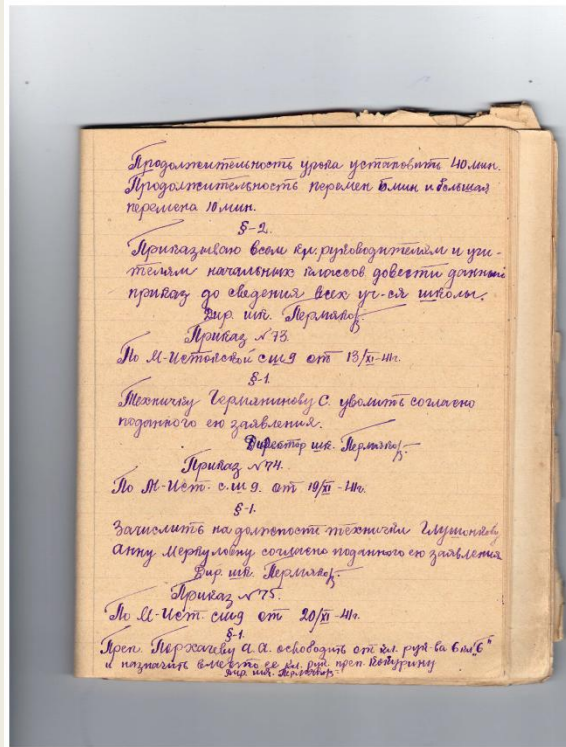 Продолжительность урока установить 40 мин.
Продолжительность перемен 5 мин и большая
перемена 10 мин.
§-2.
Приказываю всем кл. руководителям и учи-
телям начальных классов довести данный
приказ до сведения всех уч-ся школы.
Дир. шк. Пермяков
Приказ №73.
По М-Истокской сш 9 от 13/XI-41г.
§-1.
Техничку С. уволить согласно
поданного ею заявления.
Директор шк. Пермяков
Приказ №74.
По М-Ист. с.ш 9. от 19/XI-41г.
§-1.
Зачислить на должности технички Глушонкову
Анну Меркуловну согласно поданного ею заявления
Дир. шк. Пермяков
Приказ №75.
По М-Ист. сш9 от 20/XI-41г.
§-1.
Преп. Порхачеву А.А. освободить от кл. рук-ва 6 кл "б"
и назначить вместо ее кл. рук. преп. Кокурину
Дир. шк. Пермяков